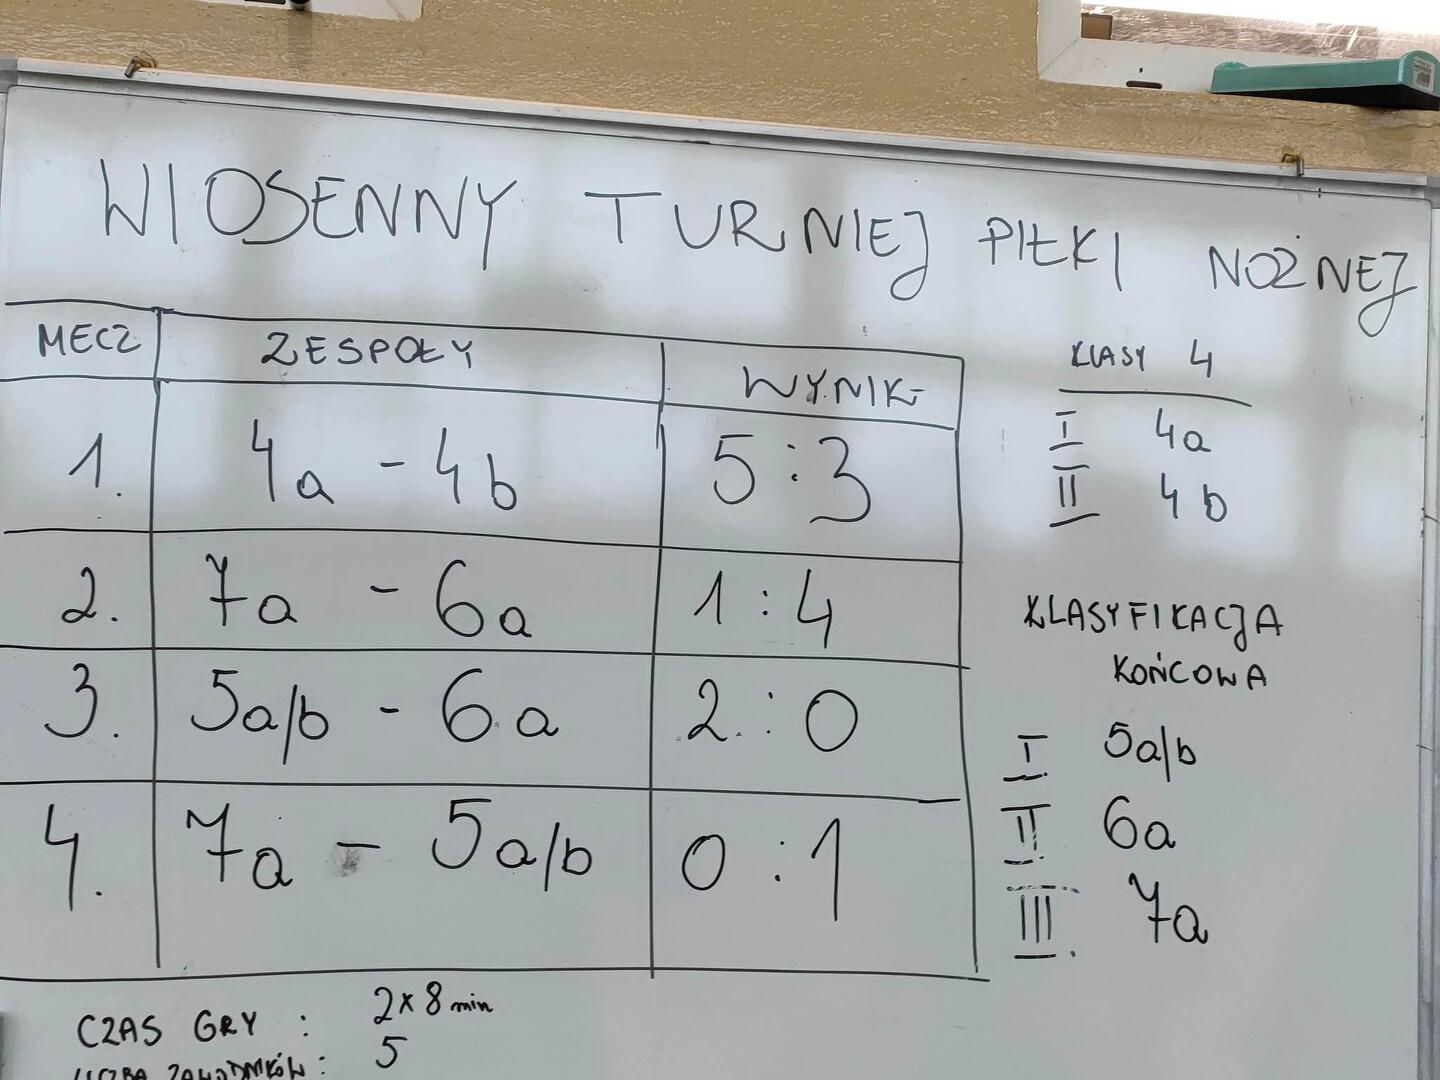 WIOSENNY TURNIEJ PIŁKI NOŻNEJ
MECZ ZESPOŁY WYNIK
1. 4a - 4b 5:3
2. 7a - 6a 1:4
3. 5a/b - 6a 2:0
4. 7a - 5a/b 0:1
CZAS GRY : 2x8 min
LICZBA ZAWODNIKÓW : 5
KLASY 4
I 4a
II 4b
KLASYFIKACJA
KOŃCOWA
I 5a/b
II 6a
III. 7a